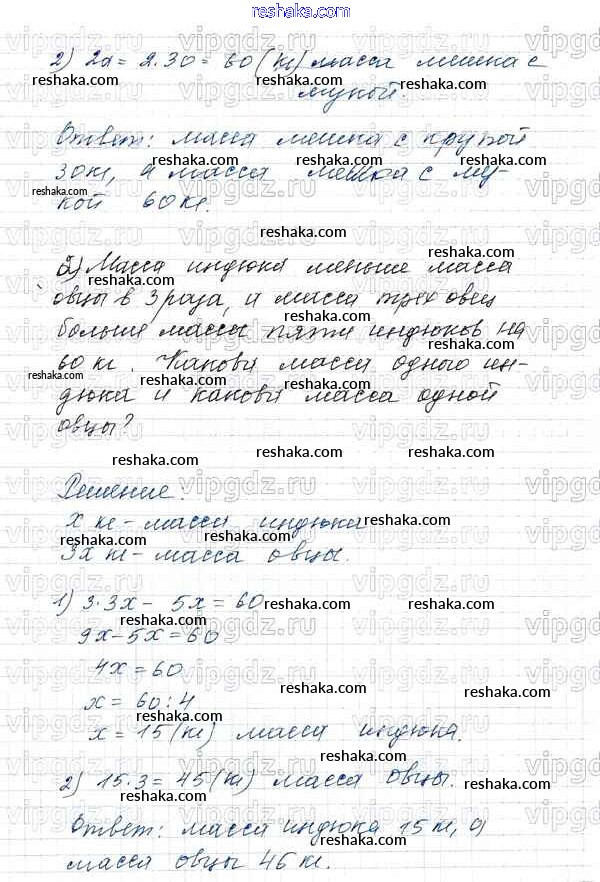 reshaka.com
2) 2a = 2·30 = 60 (кг) масса мешка с
мукой.
Ответ: масса мешка с крупой
30кг, а масса мешка с му-
кой 60 кг.
2) Масса индюка меньше масса
овцы в 3 раза, и масса трех овец
больше массы пяти индюков на
60 кг. Какова масса одного ин-
дюка и какова масса одной
овцы?
Решение:
x кг - масса индюка
3x кг - масса овцы.
1) 3·3x - 5x = 60
9x - 5x = 60
4x = 60
x = 60 : 4
x = 15 (кг) масса индюка.
2) 15·3 = 45 (кг) масса овцы.
Ответ: масса индюка 15 кг, а
масса овцы 46 кг.
reshaka.com
vipgdz.ru